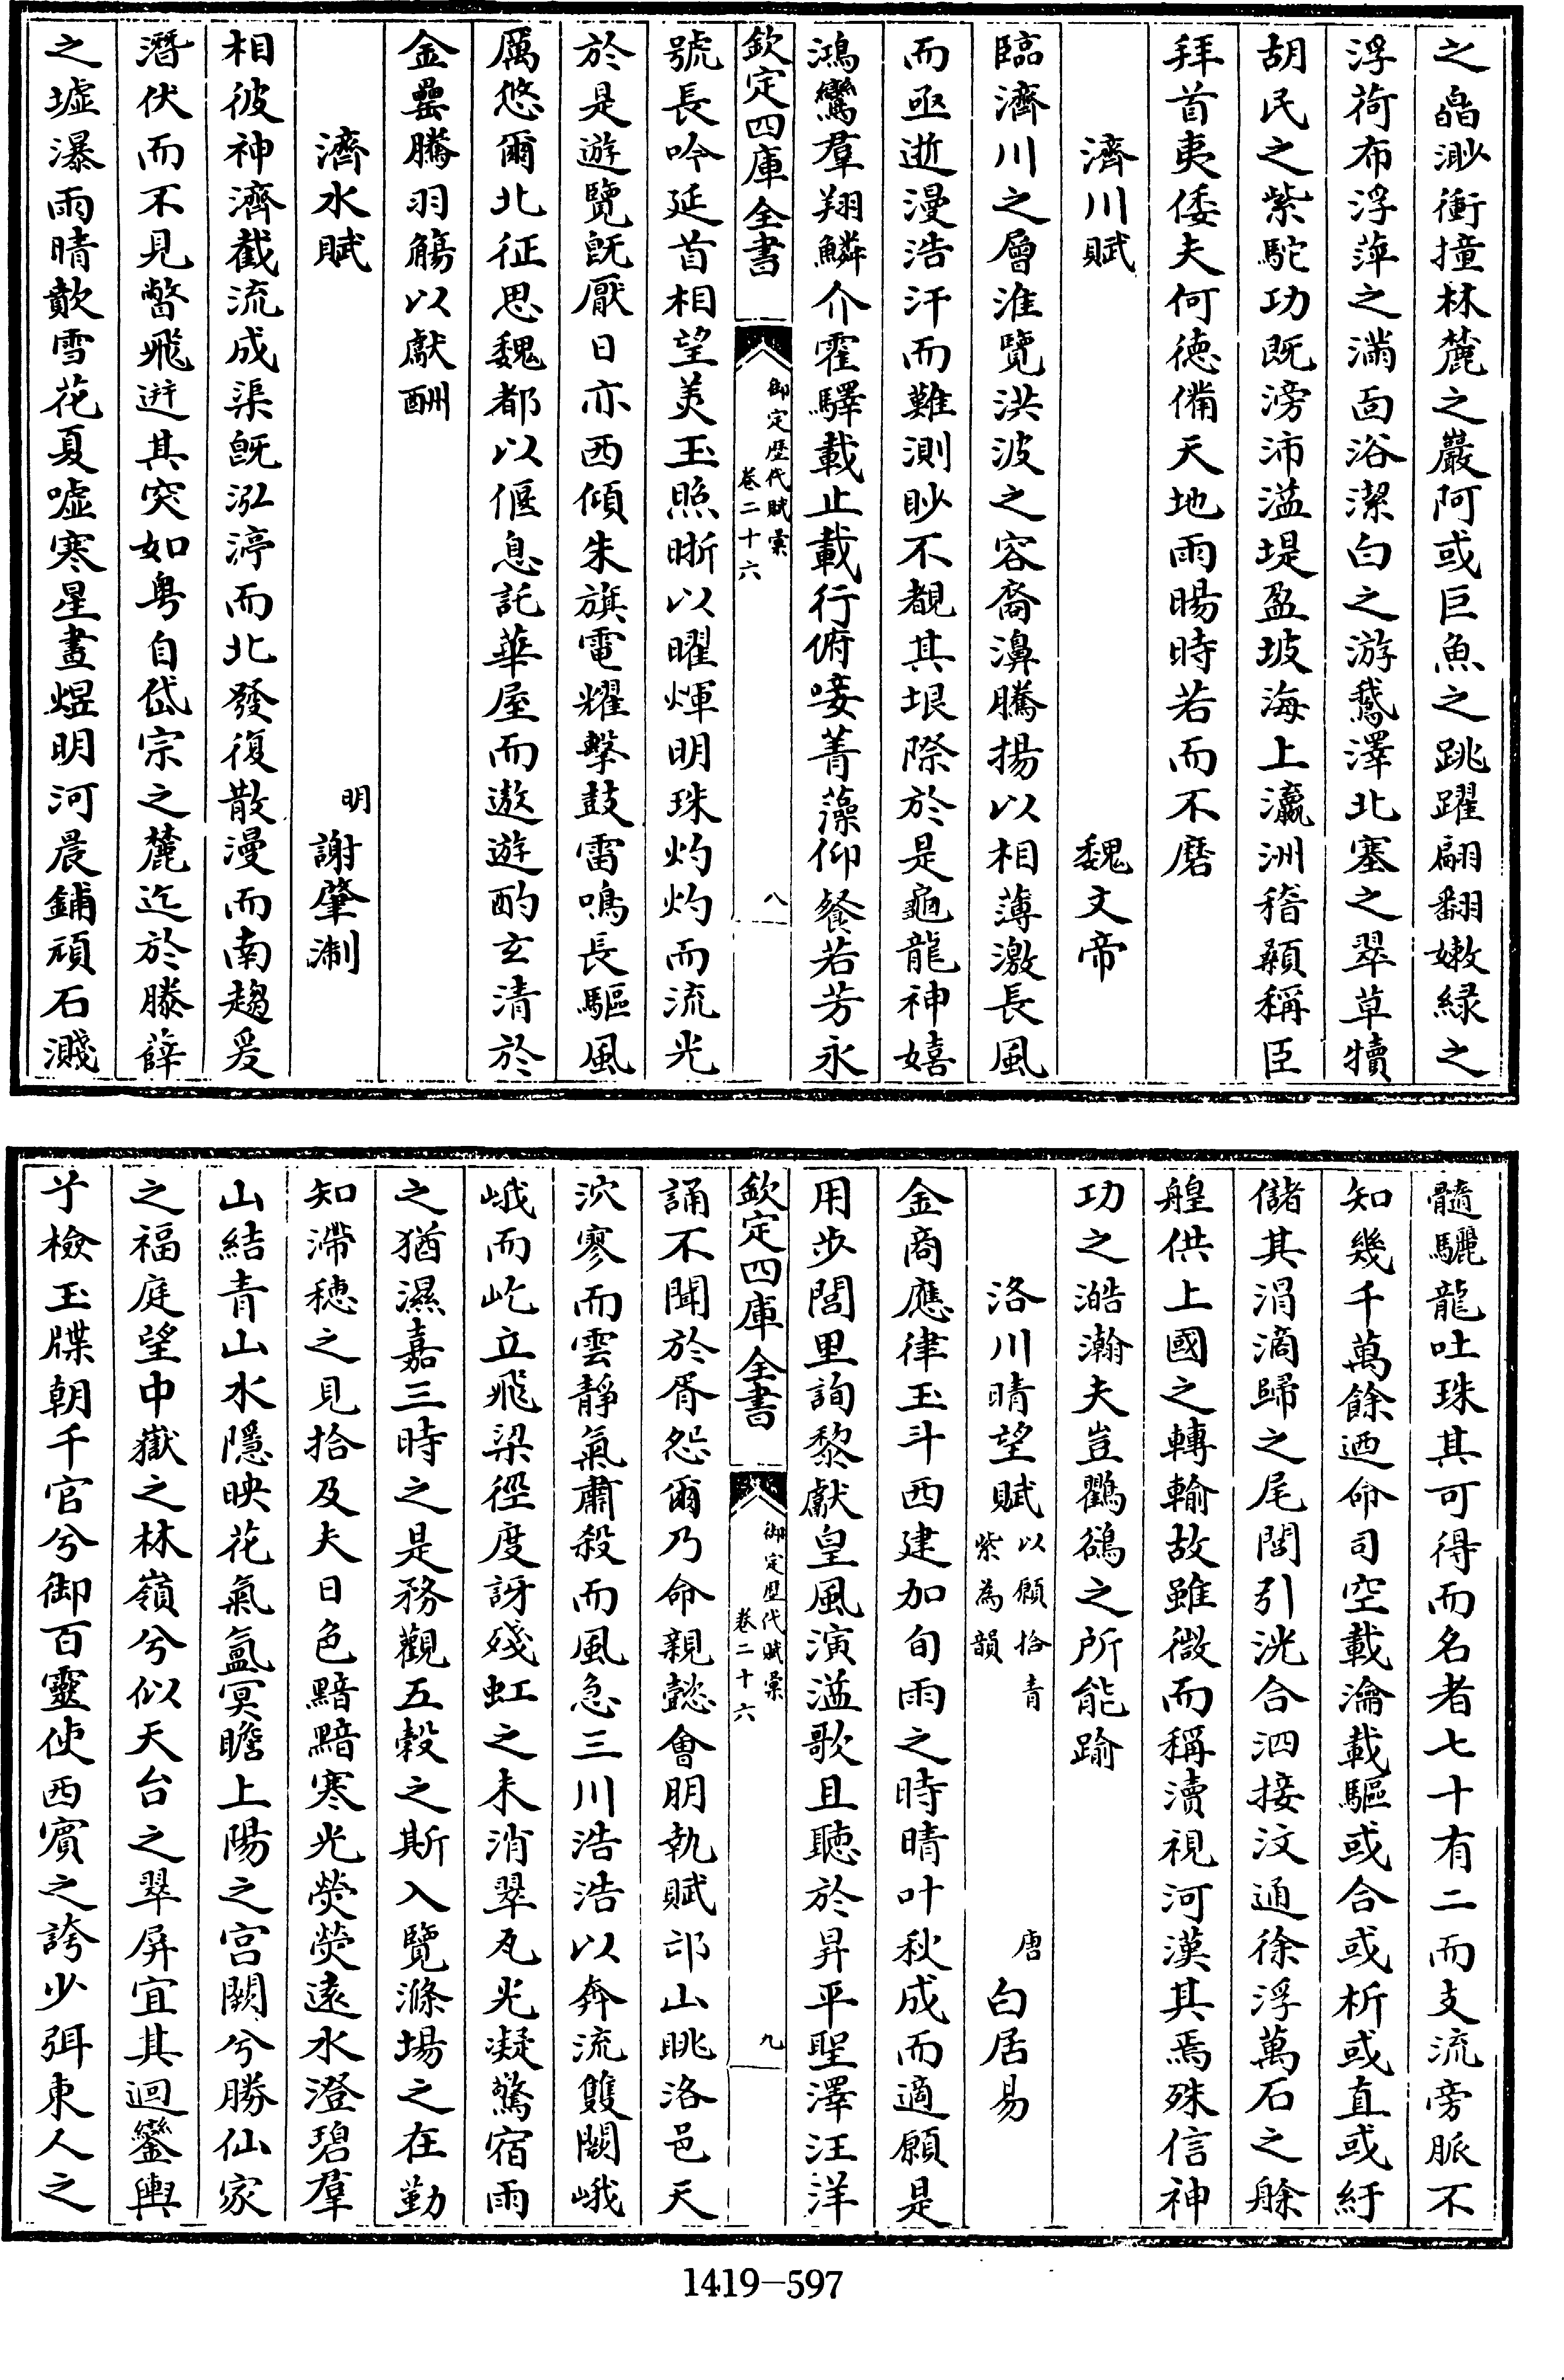 之皛渺衝撞林麓之巖阿或巨魚之跳躍翩翻嫩緑之
浮荷布浮萍之滿面浴潔白之游鵞澤北塞之翠草犢
胡民之紫駝功既滂沛溢堤盈坡海上瀛洲稽顙稱臣
拜首夷倭夫何徳備天地雨暘時若而不磨
濟川賦 魏文帝
臨濟川之層淮覽洪波之容裔濞騰揚以相薄激長風
而亟逝漫浩汗而難測眇不覩其垠際於是龜龍神嬉
鴻鸞羣翔鱗介霍驛載止載行俯唼菁藻仰餐若芳永
欽定四庫全書 御定歴代賦彙 卷二十六 八
號長吟延首相望美玉照晣以曜煇明珠灼灼而流光
於是遊覽旣厭日亦西傾朱旗電耀擊鼓雷鳴長驅風
厲悠爾北征思魏都以偃息託華屋而遨遊酌玄清於
金罍騰羽觴以獻酬
濟水賦 明 謝肇淛
相彼神濟截流成渠旣泓渟而北發復散漫而南趨爰
潛伏而不見瞥飛迸其突如粤自岱宗之麓迄於滕薛
之墟瀑雨晴歕雪花夏嘘寒星晝煜明河晨鋪頑石濺
髓驪龍吐珠其可得而名者七十有二而支流旁脈不
知幾千萬餘迺命司空載瀹載驅或合或析或直或紆
儲其涓滴歸之尾閭引洸合泗接汶通徐浮萬石之艅
艎供上國之轉輸故雖微而稱瀆視河漢其焉殊信神
功之澔瀚夫豈鸛鵒之所能踰
洛川晴望賦 以願拾青紫為韻 唐 白居易
金商應律玉斗西建加旬雨之時晴叶秋成而適願是
用步閭里詢黎獻皇風演溢歌且聽於昇平聖澤汪洋
欽定四庫全書 御定歴代賦彙 卷二十六 九
誦不聞於胥怨爾乃命親懿會朋執賦邙山眺洛邑天
泬寥而雲靜氣肅殺而風急三川浩浩以奔流雙闕峨
峨而屹立飛梁徑度訝殘虹之未消翠瓦光凝驚宿雨
之猶濕嘉三時之是務觀五穀之斯入覽滌場之在勤
知滯穗之見拾及夫日色黯黯寒光熒熒遠水澄碧羣
山結青山水隱映花氣氳冥瞻上陽之宫闕兮勝仙家
之福庭望中嶽之林嶺兮似天台之翠屏宜其迴鑾輿
兮檢玉牒朝千官兮御百靈使西賓之誇少弭東人之
1419-597